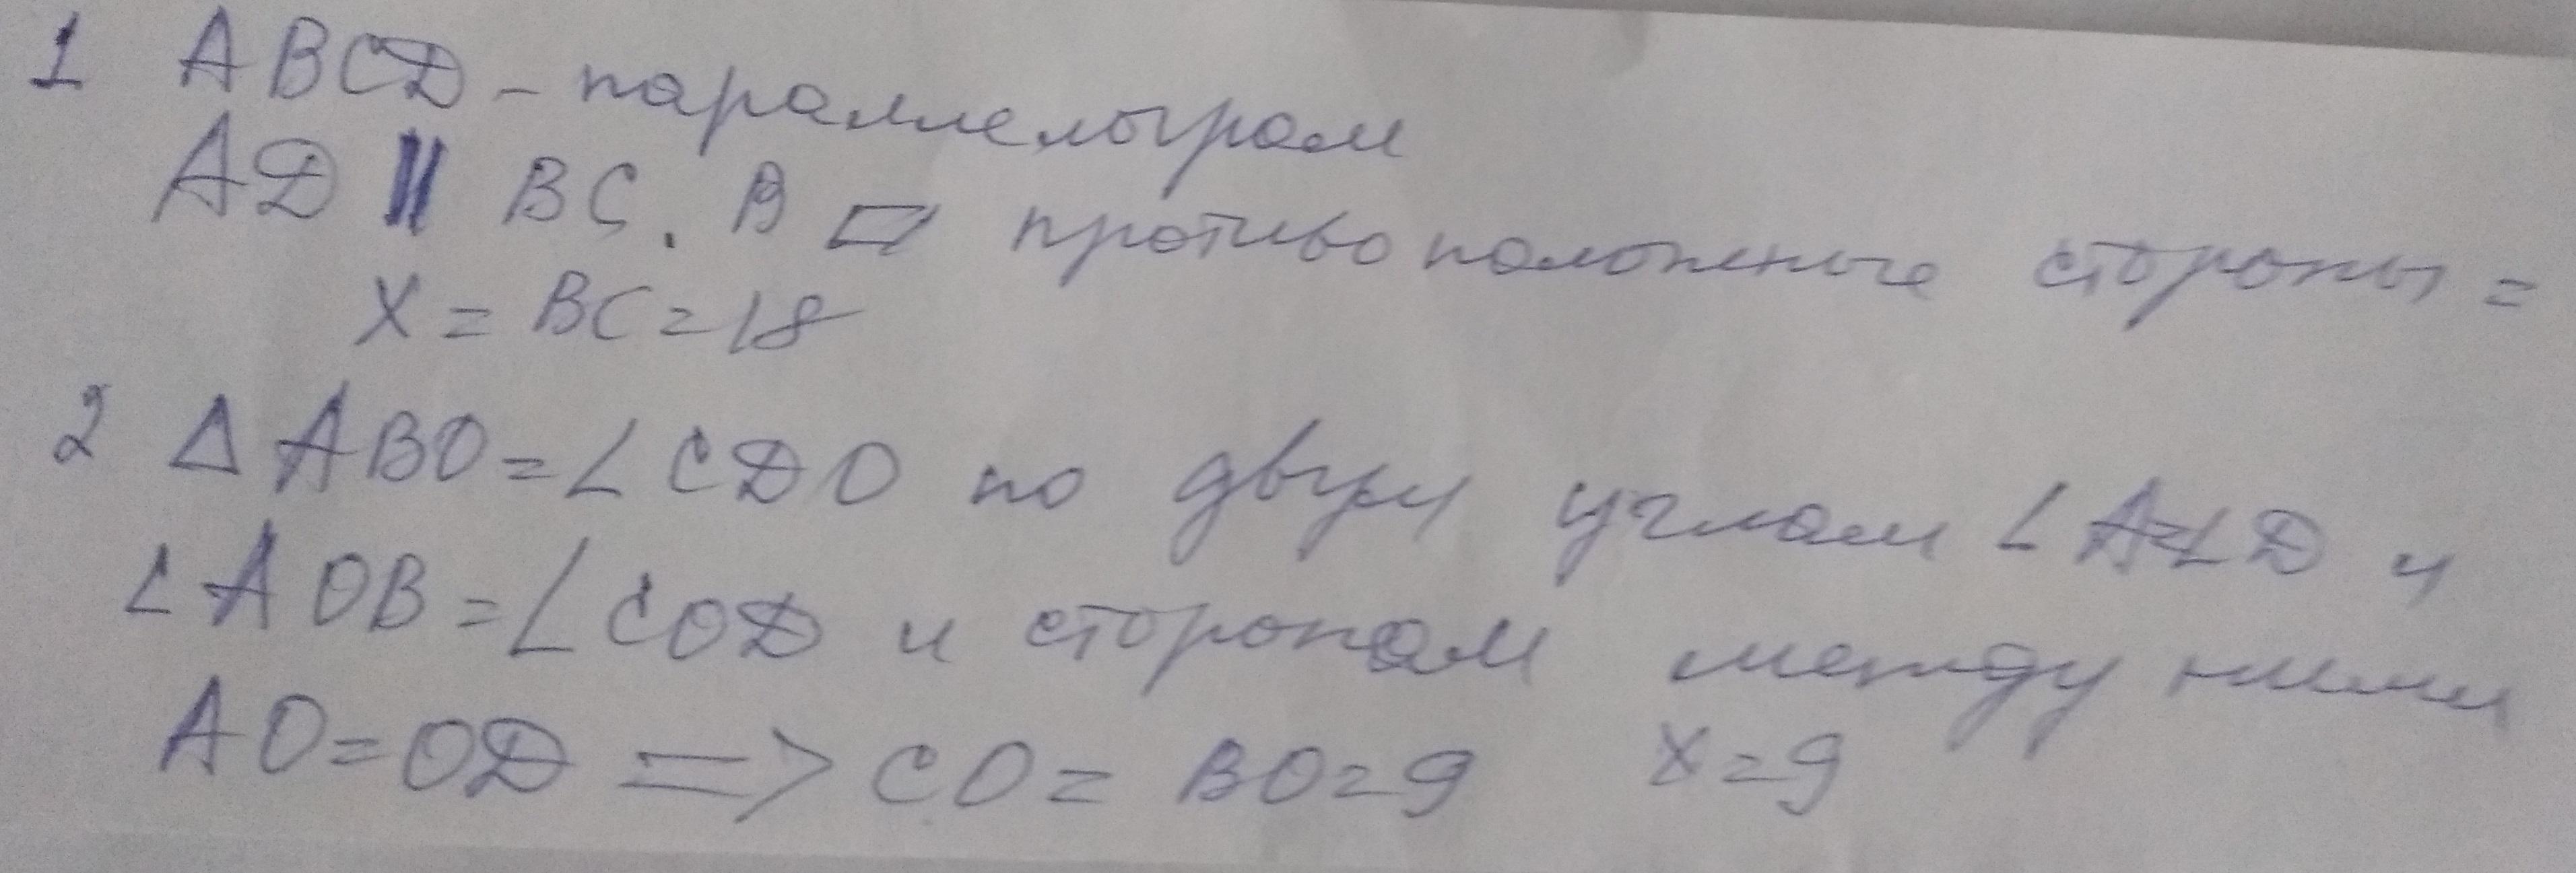 1 ABCD - параллелограм
AD || BC. В ▱ противоположные стороны =
X = BC = 18
2 Δ ABO = ∠ CDO по двум углам ∠ A = ∠ D и
∠ AOB = ∠ COD и сторонам между ними
AO = OD => CO = BO = 9 X = 9